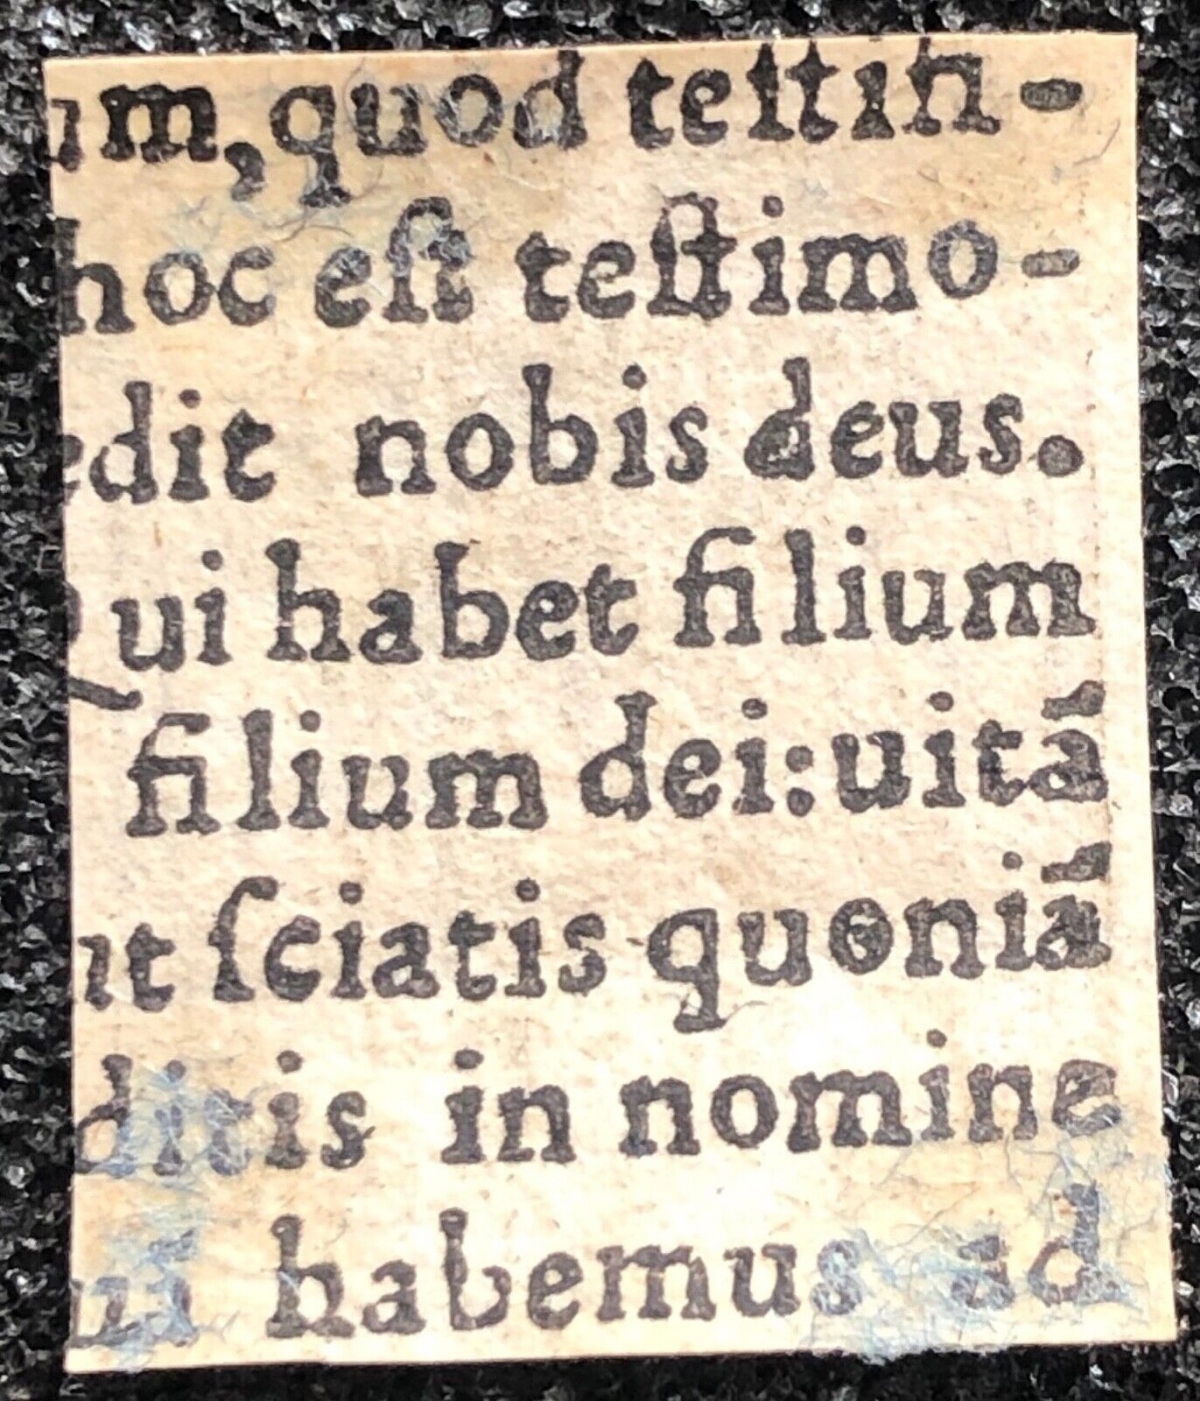 um,quod teſtifi-
hoc eſt teſtimo-
edit nobis deus.
Qui habet filium
filium dei:uitã
ut ſciatis quoniã
ditis in nomine
habemus ad